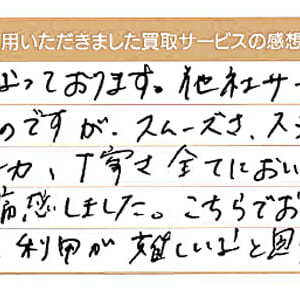 用いただきました買取サービスの感想
よっております。他社サー
のですが、スムーズさ、ス
カ、丁寧さ全てにおい
痛感しました。こちらでお
利用が難しいなと思